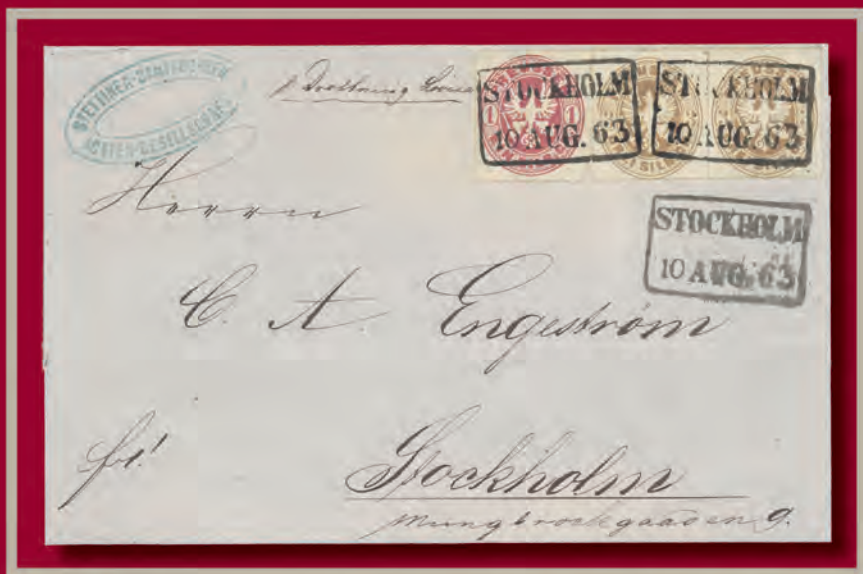 STETTINER-
ACTIEN-GESELLSCHAFT
p Drottning Lovisa
1 1
STOCKHOLM
10 AUG. 63
STOCKHOLM
10 AUG. 63
STOCKHOLM
10 AUG. 63
Herrn
C. A. Engeström
fr!
Stockholm
9.